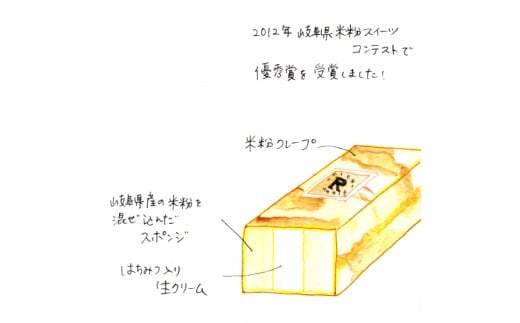 2012年 岐阜県米粉スイーツ
コンテストで
優秀賞を受賞しました！
米粉クレープ
岐阜県産の米粉を
混ぜ込んだ
スポンジ
はちみつ入り
生クリーム
R